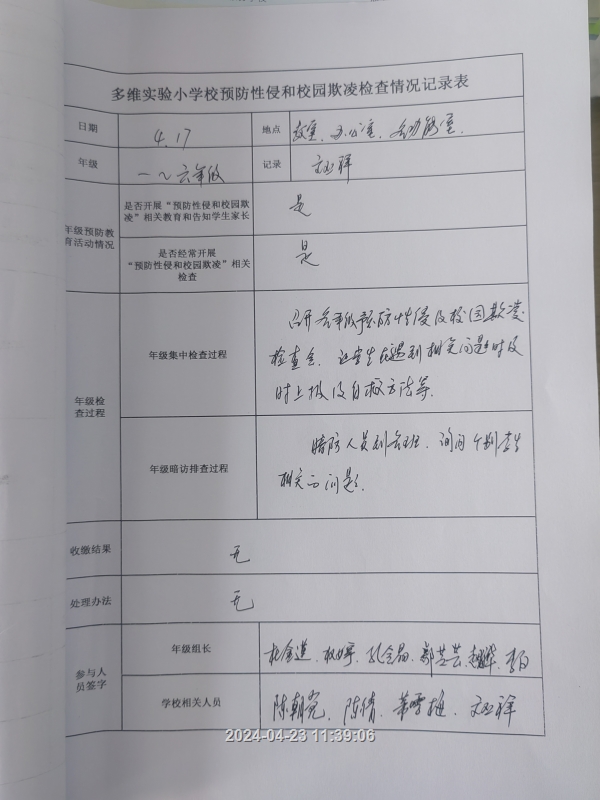 多维实验小学校预防性侵和校园欺凌检查情况记录表
日期 4.17 地点 教室、办公室、功能室.
年级 一～六年级 记录
年级预防教
育活动情况
是否开展“预防性侵和校园欺
凌”相关教育和告知学生家长
是
是否经常开展
“预防性侵和校园欺凌”相关
检查
是
年级检
查过程
年级集中检查过程
召开各年级预防性侵及校园欺凌
检查会。让学生在遇到相关问题时及
时上报及自救方法等.
年级暗访排查过程
暗访人员到各班、询问个别学生
相关的问题.
收缴结果 无
处理办法 无
参与人
员签字
年级组长
学校相关人员
陈朝 陈倩、
2024-04-23 11:39:06